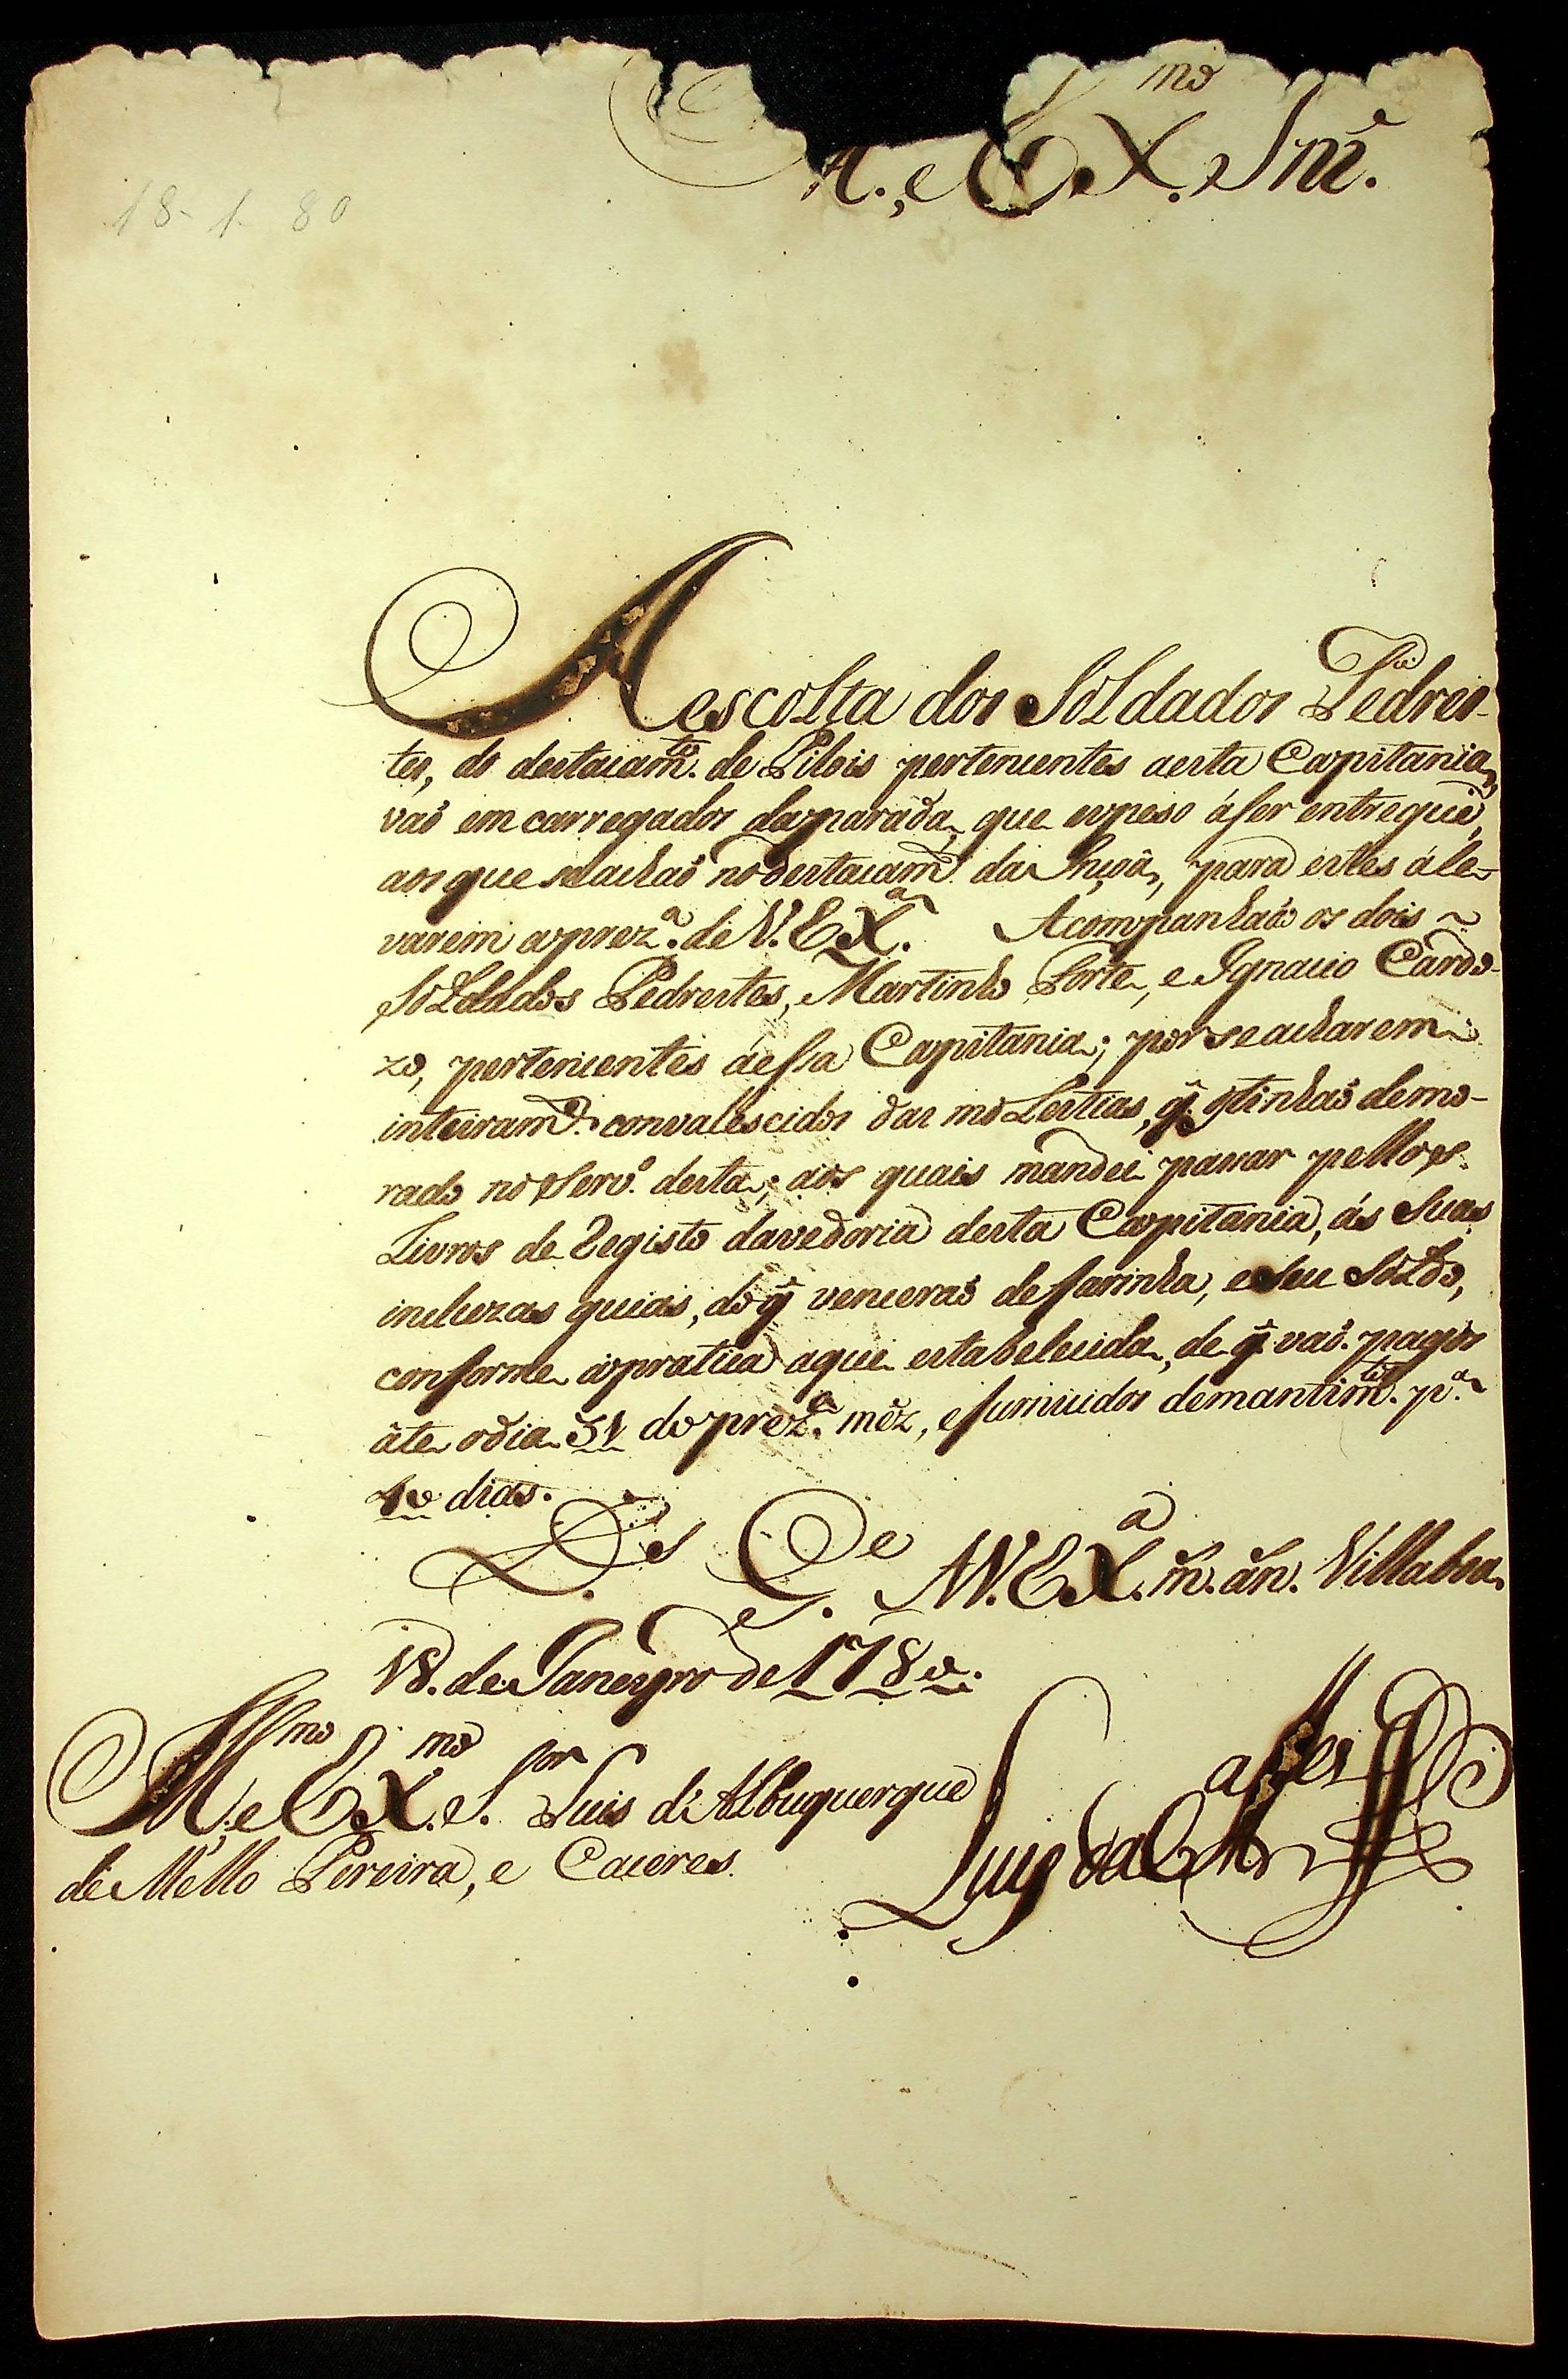 mo
18-1-80
e EX. Snr.
A escolta dos Soldados Pedres-
tes, do destacam.to de Pilois pertencentes aesta Capitania,
vaõ em carregados daparada, que expeso áser entregue,
aos que seachaõ nodestacam.to da Insoâ, para estes ále-
varem aprez.a de V. EX.a Acompanhaõ os dois
Soldados Pedrestes, Martinho Forte, e Ignacio Cardo-
zo, pertencentes áessa Capitania; por se acharem
inteiram.e convalescidos das molestias, q̃ os tinhaõ demo-
rado no Serv.o desta; aos quais mandei passar pellos
Livros de Registo davedoria desta Capitania, ás Suas
incluzas guias, do q̃ venceraõ de farinha, e Seu Soldo,
conforme apratica aqui estabelecida, de q̃ vaõ pagos
áte odia 31 do prez.e mêz, e furnicidos demantim.tos p.a
40 dias.
D.s G.e A V. EX.a m. an. Villaboa
18. de Janeyro de 1780.
Ill.mo e EX.mo S.or Luis d'Albuquerque
de Mello Pereira, e Caceres.
Luis da Cunha